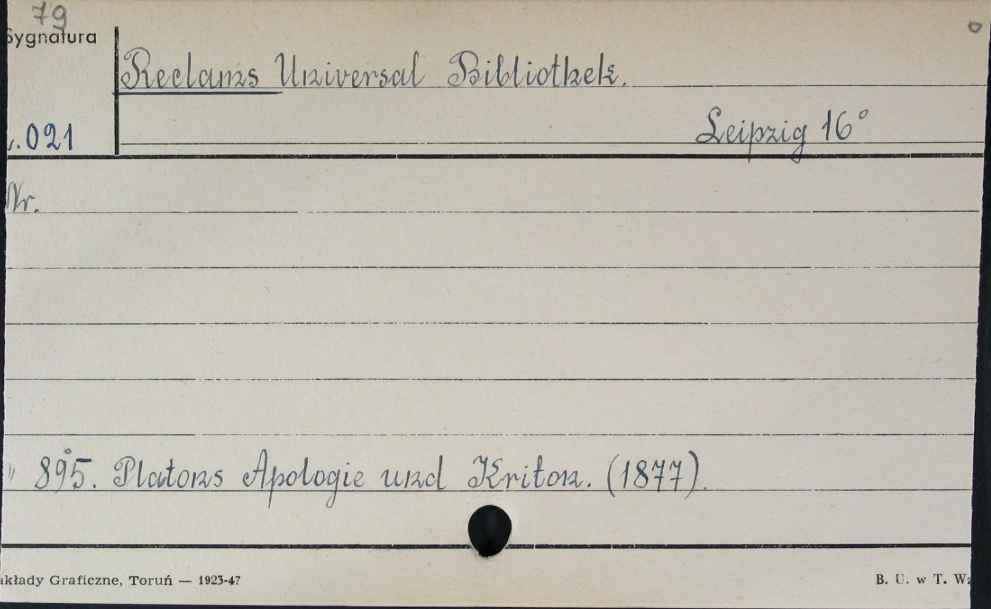 79
Sygnatura
Reclams Universal Bibliothek.
021
Leipzig 16°
Nr.
" 895. Platons Apologie und Kriton. (1877).
Graficzne, Toruń — 1923-47
B. U. w T.